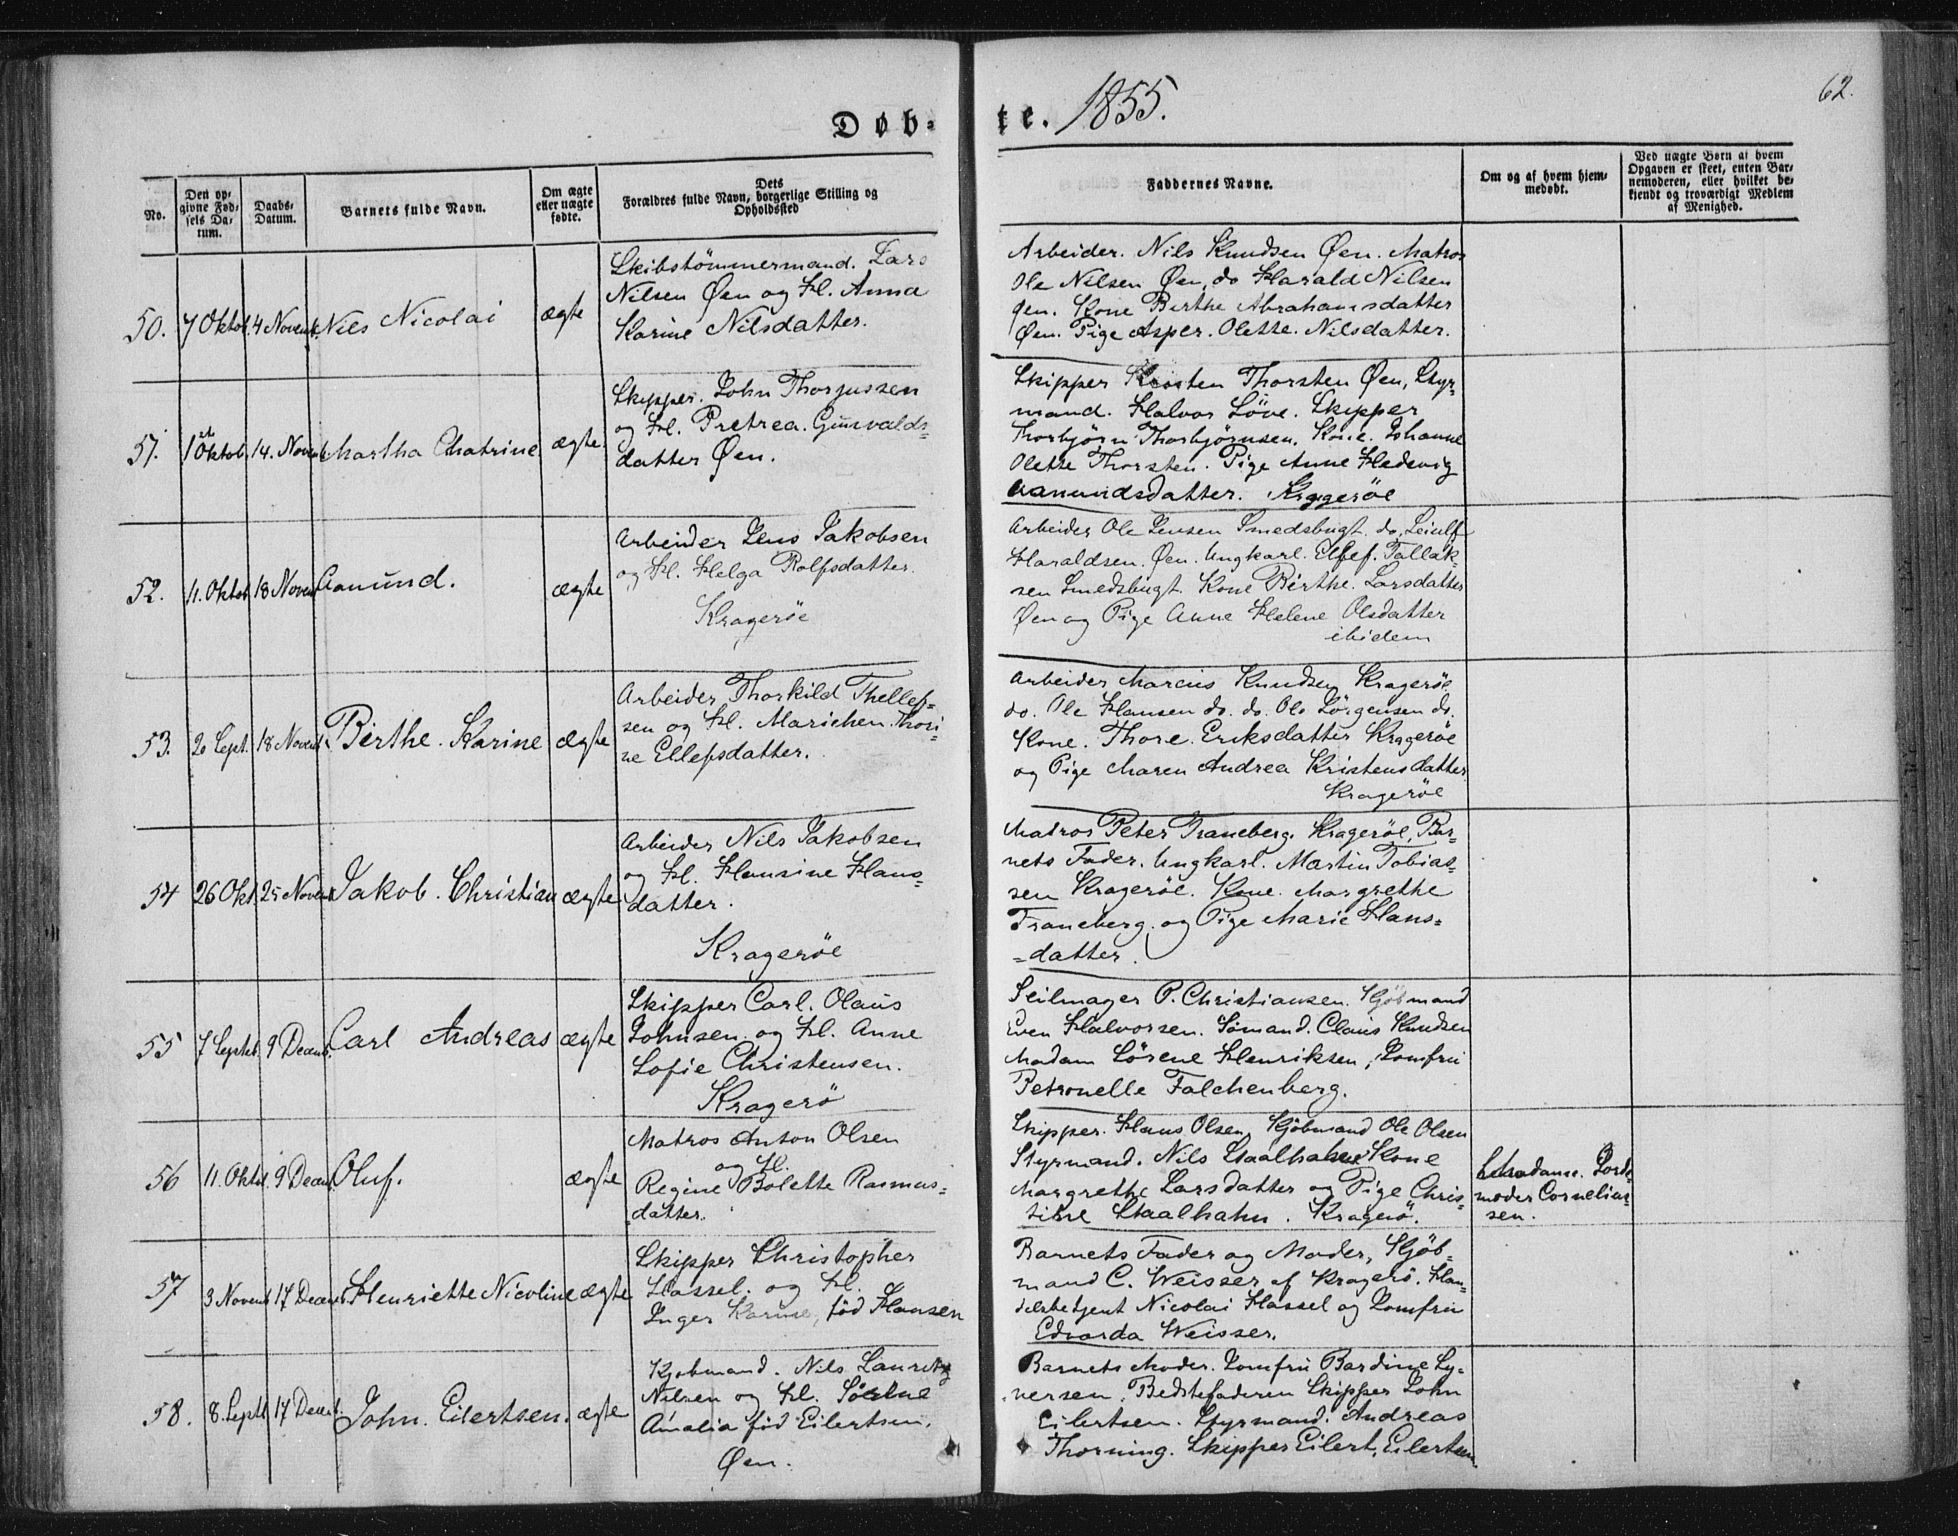 Døb-
te. 1855.
62.
No.
Den op-
givne Fød-
sels Da-
tum.
Daabs-
Datum.
Barnets fulde Navn.
Om ægte
eller uægte
fødte.
Dets
Forældres fulde Navn, borgerlige Stilling og
Opholdssted
Faddernes Navne.
Om og af hvem hjem-
medøbt.
Ved uægte Børn af hvem
Opgaven er skeet, enten Bar-
nemoderen, eller hvilket be-
kjendt og troværdigt Medlem
af Menighed.
50.
7 Oktob.
4 Novemb.
Nils Nicolai
ægte
Skibstömmermand. Lars
Nilsen Øen og H. Anna
Karine Nilsdatter.
Arbeider. Nils Knudsen Øen. Matros
Ole Nilsen Øen, do Harald Nilsen
Øen. Kone Birthe Abrahamsdatter
Øen. Pige Asper. Olette. Nilsdatter.
51.
1st Oktob.
14. Novemb
Martha Chatrine
ægte.
Skipper. John Thorjussen
og H. Pretrea. Gunvalds-
datter Øen.
Skipper Kristen Thorsten Øen, Styr-
mand. Halvor Löve. Skipper
Thorbjörn Thorbjörnsen. Kone. Johanne
Olette Thorsten. Pige Anne Hedevig
Aanundsdatter. Kragerøe
52.
11. Oktob
18 Novemb
Aanund.
ægte
Arbeider Jens Jakobsen
og H. Helga Rolfsdatter.
Kragerøe
Arbeider Ole Jensen Smedsbugt. do. Leiulf
Haraldsen. Øen. Ungkarl. Ellef. Tallak-
sen Smedsbugt. Kone Birthe. Larsdatter
Øen og Pige Anne Helene Olsdatter
ibidem
53.
20 Sept.
18 Novemb.
Birthe. Karine
ægte
Arbeider Thorkild Thellef-
sen og H. Marichen Thori-
ne Ellefsdatter.
Arbeider Marcus Knudsen Kragerøe
do. Ole Hansen do. do. Ole Jörgensen do.
Kone. Thore. Eriksdatter Kragerøe
og Pige Maren Andrea Kristensdatter
Kragerøe
54
26 Okt.
25 Novemb
Jakob. Christian
ægte
Arbeider Nils Jakobsen
og H. Hansine Hans-
datter.
Kragerøe
Matros Peter Traneberg. Kragerøe, Bar-
nets Fader. Ungkarl. Martin Tobias-
sen Kragerøe. Kone. Margrethe
Traneberg. og Pige Marie Hans-
-datter.
55
7 Septb.
9 Decemb.
Carl Andreas
ægte
Skipper Carl. Olaus
Johnsen og H. Anne
Sofie Christensen.
Kragerø
Seilmager P. Christiansen. Kjöbmand
Even Halvorsen. Sömand. Claus Knudsen
Madam Sörene Henriksen, Jomfru
Petronelle Falchenberg.
56
11. Oktb.
9 Decemb.
Oluf.
ægte
Matros Anton Olsen
og H.
Regine Bolette Rasmus-
datter.
Skipper. Hans Olsen, Kjöbmand Ole Olsen
Styrmand. Nils Staalhahn Kone
Margrethe Larsdatter og Pige Chris-
tine Staalhahn. Kragerö.
Madame. Jorde-
moder Cornelius-
sen.
57
3 Novemb
17 Decemb
Henriette Nicoline
ægte
Skipper Christopher
Hassel. og H.
Inger Karine, föd Hansen
Barnets Fader og Moder, Kjöb-
mand C. Weisser af Kragerö. Han-
delsbetjent Nicolai Hassel og Jomfru
Edvarda Weisser.
58.
8. Septb
17 Decemb.
John. Eilertsen.
ægte
Kjobmand. Nils Lauritz
Nilsen og H. Sörine
Amalia föd Eilertsen.
Øen.
Barnets Moder. Jomfru Bardine Sy-
versen. Bedstefaderen Skipper John
Eilertsen. Styrmand. Andreas
Thorning. Skipper Eilert. Eilertsen.